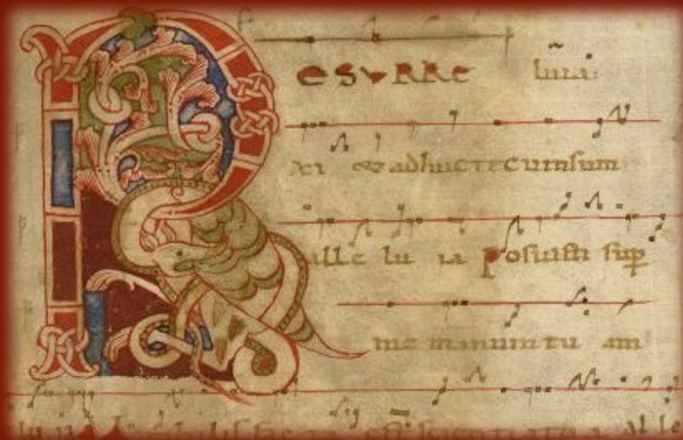 R ESVRRE luia:
xi & adhuc tecum sum
alle lu ia Posuisti sup
me manum tu am